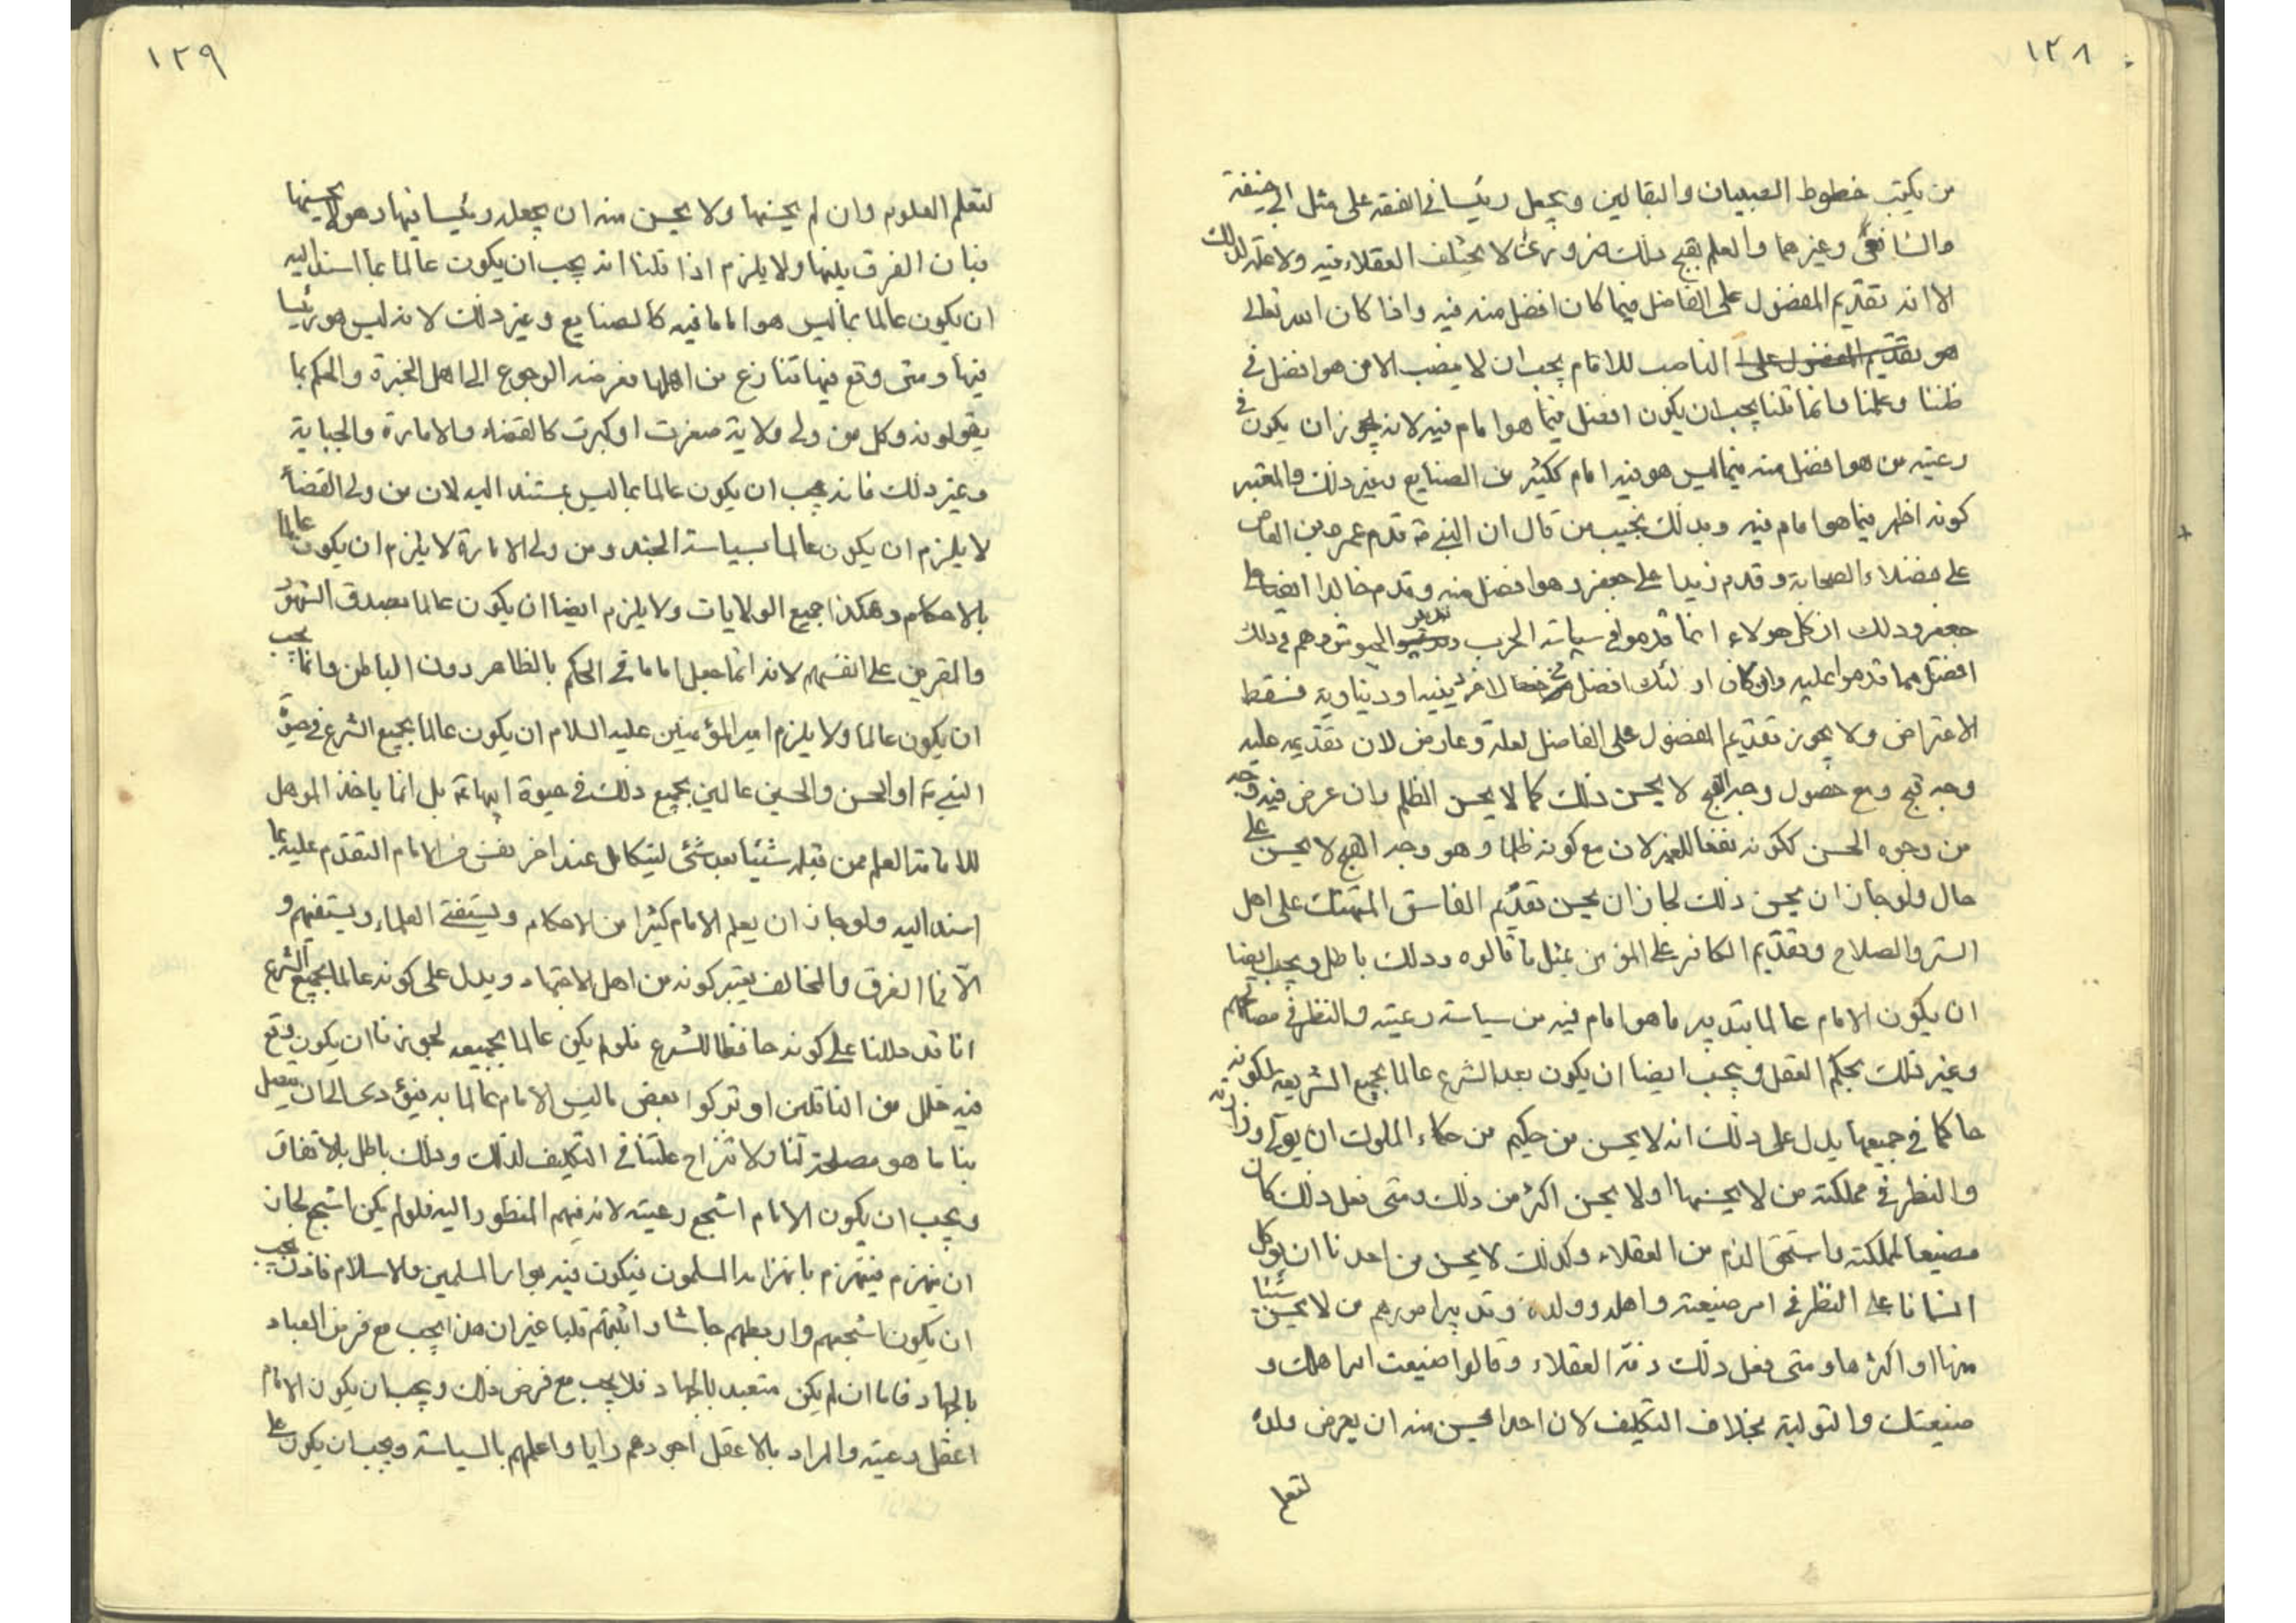 ١٢٨
من يكتب خطوط الصبيان والبقالين ويجعل رئيسا في الفقه على مثل ابي حنيفة
والشافعي وغيرهما والعلم بقبح ذلك ضروري لا يختلف العقلاء فيه ولا علة لذلك
الا انه تقديم المفضول على الفاضل فيما كان افضل منه فيه واذا كان الله تعالى
هو تقديم المفضول على الناصب للامام يجب ان لا ينصب الا من هو افضل في
ظننا وعلمنا وانما قلنا يجب ان يكون افضل فيما هو امام فيه لانه يجوز ان يكون في
رعيته من هو افضل منه فيما ليس هو فيه امام ككثير من الصنايع وغير ذلك والمعتبر
كونه اظهر فيما هو امام فيه وبذلك نجيب من قال ان النبي ص قدم عمرو بن العاص
على فضلاء الصحابة وقدم زيدا على جعفر وهو افضل منه وقدم خالدا ايضا على
جعفر وذلك ان كل هولاء انما قدموا في سياسة الحرب وتدبير الجيوش وهم في ذلك
افضل مما قدموا عليه وان كان اولئك افضل في خصال اخر دينيه او دنياوية فسقط
الاعتراض ولا يجوز تقديم المفضول على الفاضل لعلة وعارض لان تقديمه عليه
وجه قبح ومع حصول وجه القبح لا يحسن ذلك كما لا يحسن الظلم وان عرض فيه وجه
من وجوه الحسن ككونه نفعا للغير لان مع كونه ظلما وهو وجه القبح لا يحسن على
حال ولو جاز ان يحسن ذلك لجاز ان يحسن تقديم الفاسق المتهتك على اهل
الستر والصلاح وتقديم الكافر على المؤمن بمثل ما قالوه وذلك باطل ويجب ايضا
ان يكون الامام عالما بتدبير ما هو امام فيه من سياسة رعيته والنظر في مصالحهم
وغير ذلك بحكم العقل ويجب ايضا ان يكون بعد الشرع عالما بجميع الشريعة لكونه
حاكما في جميعها يدل على ذلك انه لا يحسن من حكيم من حكماء الملوك ان يولي وزارته
والنظر في مملكته من لا يحسنها او لا يحسن اكثر من ذلك ومتى فعل ذلك كان
مضيعا لمملكته واستحق الذم من العقلاء وكذلك لا يحسن من احدنا ان يوكل
انسانا على النظر في امر ضيعته واهله وولده وتدبير امورهم من لا يحسن شيئا
منها او اكثرها ومتى فعل ذلك ذمه العقلاء وقالوا ضيعت امر اهلك و
ضيعتك والتولية بخلاف التكليف لان احدا يحسن منه ان يعرض ولده
لتعلم
١٢٩
لتعلم العلوم وان لم يحسنها ولا يحسن منه ان يجعله رئيسا فيها وهو لا يحسنها
فبان الفرق بينها ولا يلزم اذا قلنا انه يجب ان يكون عالما بما اسند اليه
ان يكون عالما بما ليس هو اماما فيه كالصنايع وغير ذلك لانه ليس هو رئيسا
فيها ومتى وقع فيها تنازع من اهلها ففرضه الرجوع الى اهل الخبرة والحكم بما
يقولونه وكل من ولى ولاية صغرت او كبرت كالقضاء والامارة والجباية
وغير ذلك فانه يجب ان يكون عالما بما ليس بمستند اليه لان من ولى القضاء
لا يلزم ان يكون عالما بسياسة الجند ومن ولى الامارة لا يلزم ان يكون عالما
بالاحكام وهكذا جميع الولايات ولا يلزم ايضا ان يكون عالما بصدق الشهود
والمقرين على انفسهم لانه انما جعل اماما في الحكم بالظاهر دون الباطن وانما يجب
ان يكون عالما ولا يلزم امير المؤمنين عليه السلام ان يكون عالما بجميع الشرع في حيوة
النبي ص او الحسن والحسين عالمين بجميع ذلك في حيوة ابيهما ع بل انما ياخذ المؤهل
للامامة العلم ممن قبله شيئا بعد شئ ليتكامل عند اخر نفس من الامام المتقدم عليه بما
اسند اليه ولو جاز ان يعلم الامام كثيرا من الاحكام ويستفتي العلماء ويستفتيهم و
الا فما الفرق والمخالف يعتبر كونه من اهل الاجتهاد ويدل على كونه عالما بجميع الشرع
انا قد دللنا على كونه حافظا للشرع فلو لم يكن عالما بجميعه لجوزنا ان يكون وقع
فيه خلل من الناقلين او تركوا بعض ما ليس الامام عالما به فيؤدى الى ان يتصل
بنا ما هو مصلحة لنا ولا تنزاح علتنا في التكليف لذلك وذلك باطل بالاتفاق
ويجب ان يكون الامام اشجع رعيته لانه فيهم المنظور اليه فلو لم يكن اشجع لجاز
ان ينهزم فينهزم بانهزامه المسلمون فيكون فيه بوار المسلمين والاسلام فاذن يجب
ان يكون اشجعهم واربطهم جاشا واثبتهم قلبا غير ان هذا يجب مع فرض العباد
بالجهاد فاما ان لم يكن متعبد بالجهاد فلا يجب مع فرض ذلك ويجب ان يكون الامام
اعقل رعيته والمراد بالاعقل اجودهم رايا واعلمهم بالسياسة ويجب ان يكون على